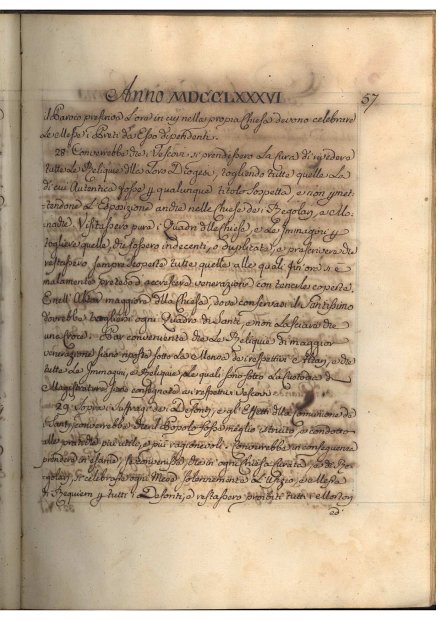 Anno MDCCLXXXVI 57
i Paroco prefina l'ore in cui nella propria Chiesa devono celebrare
le Messe i Preti da Esso dipendenti.
28. Converrebbe che i Vescovi si prendessero la cura di rivedere
tutte le Relique delle loro Diogesi, togliendo tutte quelle la
di cui Autentica fosse p qualunque titolo sospetta, e non pmet-
tendone l'Esposizione anche nelle Chiese de' Regolari, e Mo-
nache. Visitassero pure i Quadri delle Chiese, e le Immagini p
togliere quelle, che fossero indecenti, o duplicate, e prescrivere che
restassero sempre scoperte tutte quelle, alle quali si
malamente pretende accrescere venerazione con tenerle coperte.
E nell' Altar maggiore della Chiesa, dove conservasi il Santissimo
dovrebbe togliersi ogni Quadro di Santi, e non lasciare che
una Croce. Par conveniente che le Relique di maggior
venerazione siano riposte sotto la Mensa de' respettivi Altari, e che
tutte le Immagini, e Relique le quali sono sotto la custodia di
Magistrature siano consegnate ai respettivi Vescovi
29. Sopra i Suffragi de' Defonti, e gl' Effetti della comunione de'
Santi converrebbe che il Popolo fosse meglio istruito, e condotto
alle pratiche più utili, e più ragionevoli. Converrebbe in conseguenza
prendere in esame, se convenisse, che in ogni Chiesa Curata, e de' Re-
golari, si celebrasse ogni Mese solennemente l' Ufizio, e Messa
di Requiem p tutti i Defonti, e restassero proibite tutti i Mortori
ed